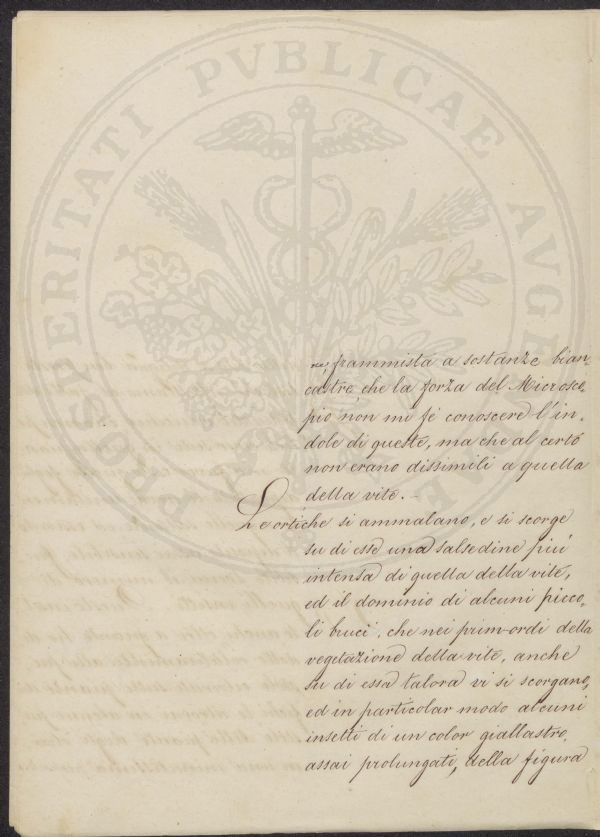 PROSPERITATI PVBLICAE AVGE
re, frammista a sostanze bian-
castre, che la forza del Microsco-
pio non mi fè conoscere l'in-
dole di queste, ma che al certo
non erano dissimili a quella
della vite. -
Le ortiche si ammalano, e si scorge
su di esse una salsedine più
intensa di quella della vite,
ed il dominio di alcuni picco-
li bruci, che nei prim-ordi della
vegetazione della vite, anche
su di essa talora vi si scorgano,
ed in particolar modo alcuni
insetti di un color giallastro,
assai prolungati, della figura